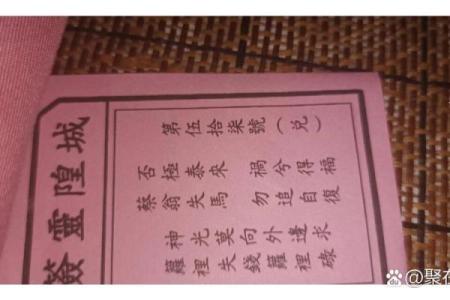 城隍靈簽
第伍拾柒號（兌）
否極泰來 禍兮得福
蔡翁失馬 勿追自復
神光莫向外邊求
蘿裡失錢蘿裡碌
@聚在